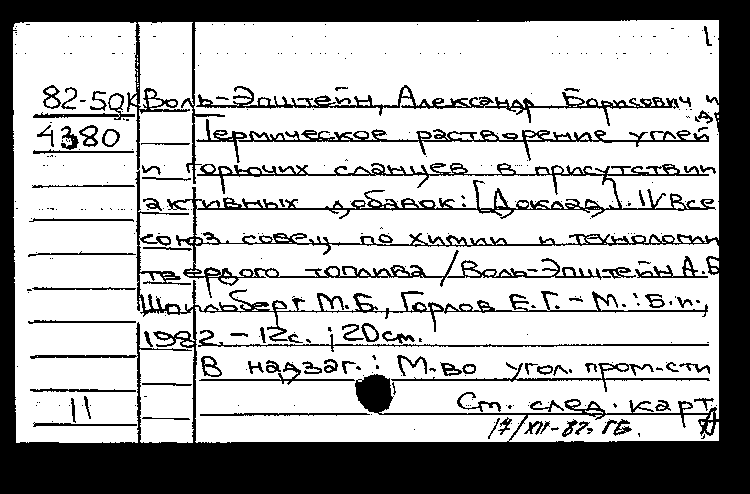 1
82-5QK Воль-Эпштейн, Александр Борисович и др
4380 Термическое растворение углей
и горючих сланцев в присутствии
активных добавок: [Доклад]. IV Все
союз. совещ по химии и технологии
твердого топлива / Воль-Эпштейн А.Б
Шпильберг М.Б., Горлов Е.Г. - М.: Б.и.,
1982. - 12с. ; 20см.
В надзаг.: М-во угол. пром-сти
11 См. след. карт
17/XII-82. ГБ. А